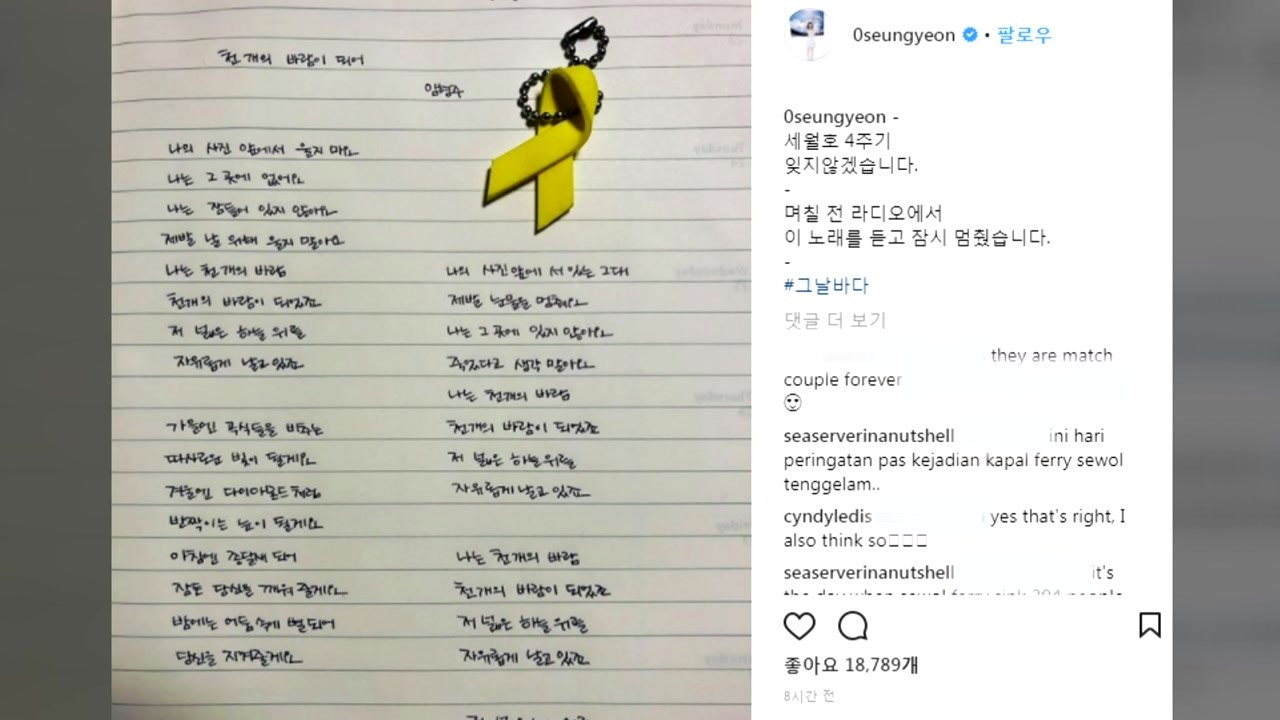 천 개의 바람이 되어
임형주
나의 사진 앞에서 울지 마요
나는 그 곳에 없어요
나는 잠들어 있지 않아요
제발 날 위해 울지 말아요
나는 천 개의 바람
천개의 바람이 되었죠
저 넓은 하늘 위를
자유롭게 날고 있죠
가을엔 곡식들을 비추는
따사로운 빛이 될게요
겨울엔 다이아몬드처럼
반짝이는 눈이 될게요
아침엔 종달새 되어
잠든 당신을 깨워 줄게요
밤에는 어둠 속에 별 되어
당신을 지켜줄게요
나의 사진 앞에 서 있는 그대
제발 눈물을 멈춰요
나는 그 곳에 있지 않아요
죽었다고 생각 말아요
나는 천개의 바람
천개의 바람이 되었죠
저 넓은 하늘 위를
자유롭게 날고 있죠
나는 천 개의 바람
천개의 바람이 되었죠
저 넓은 하늘 위를
자유롭게 날고 있죠
0seungyeon • 팔로우
0seungyeon -
세월호 4주기
잊지않겠습니다.
-
며칠 전 라디오에서
이 노래를 듣고 잠시 멈췄습니다.
-
#그날바다
댓글 더 보기
they are match
couple forever
seaserverinanutshell ini hari
peringatan pas kejadian kapal ferry sewol
tenggelam..
cyndyledis yes that's right, I
also think so
seaserverinanutshell it's
the day when sewol ferry sink 304 people
좋아요 18,789개
8시간 전